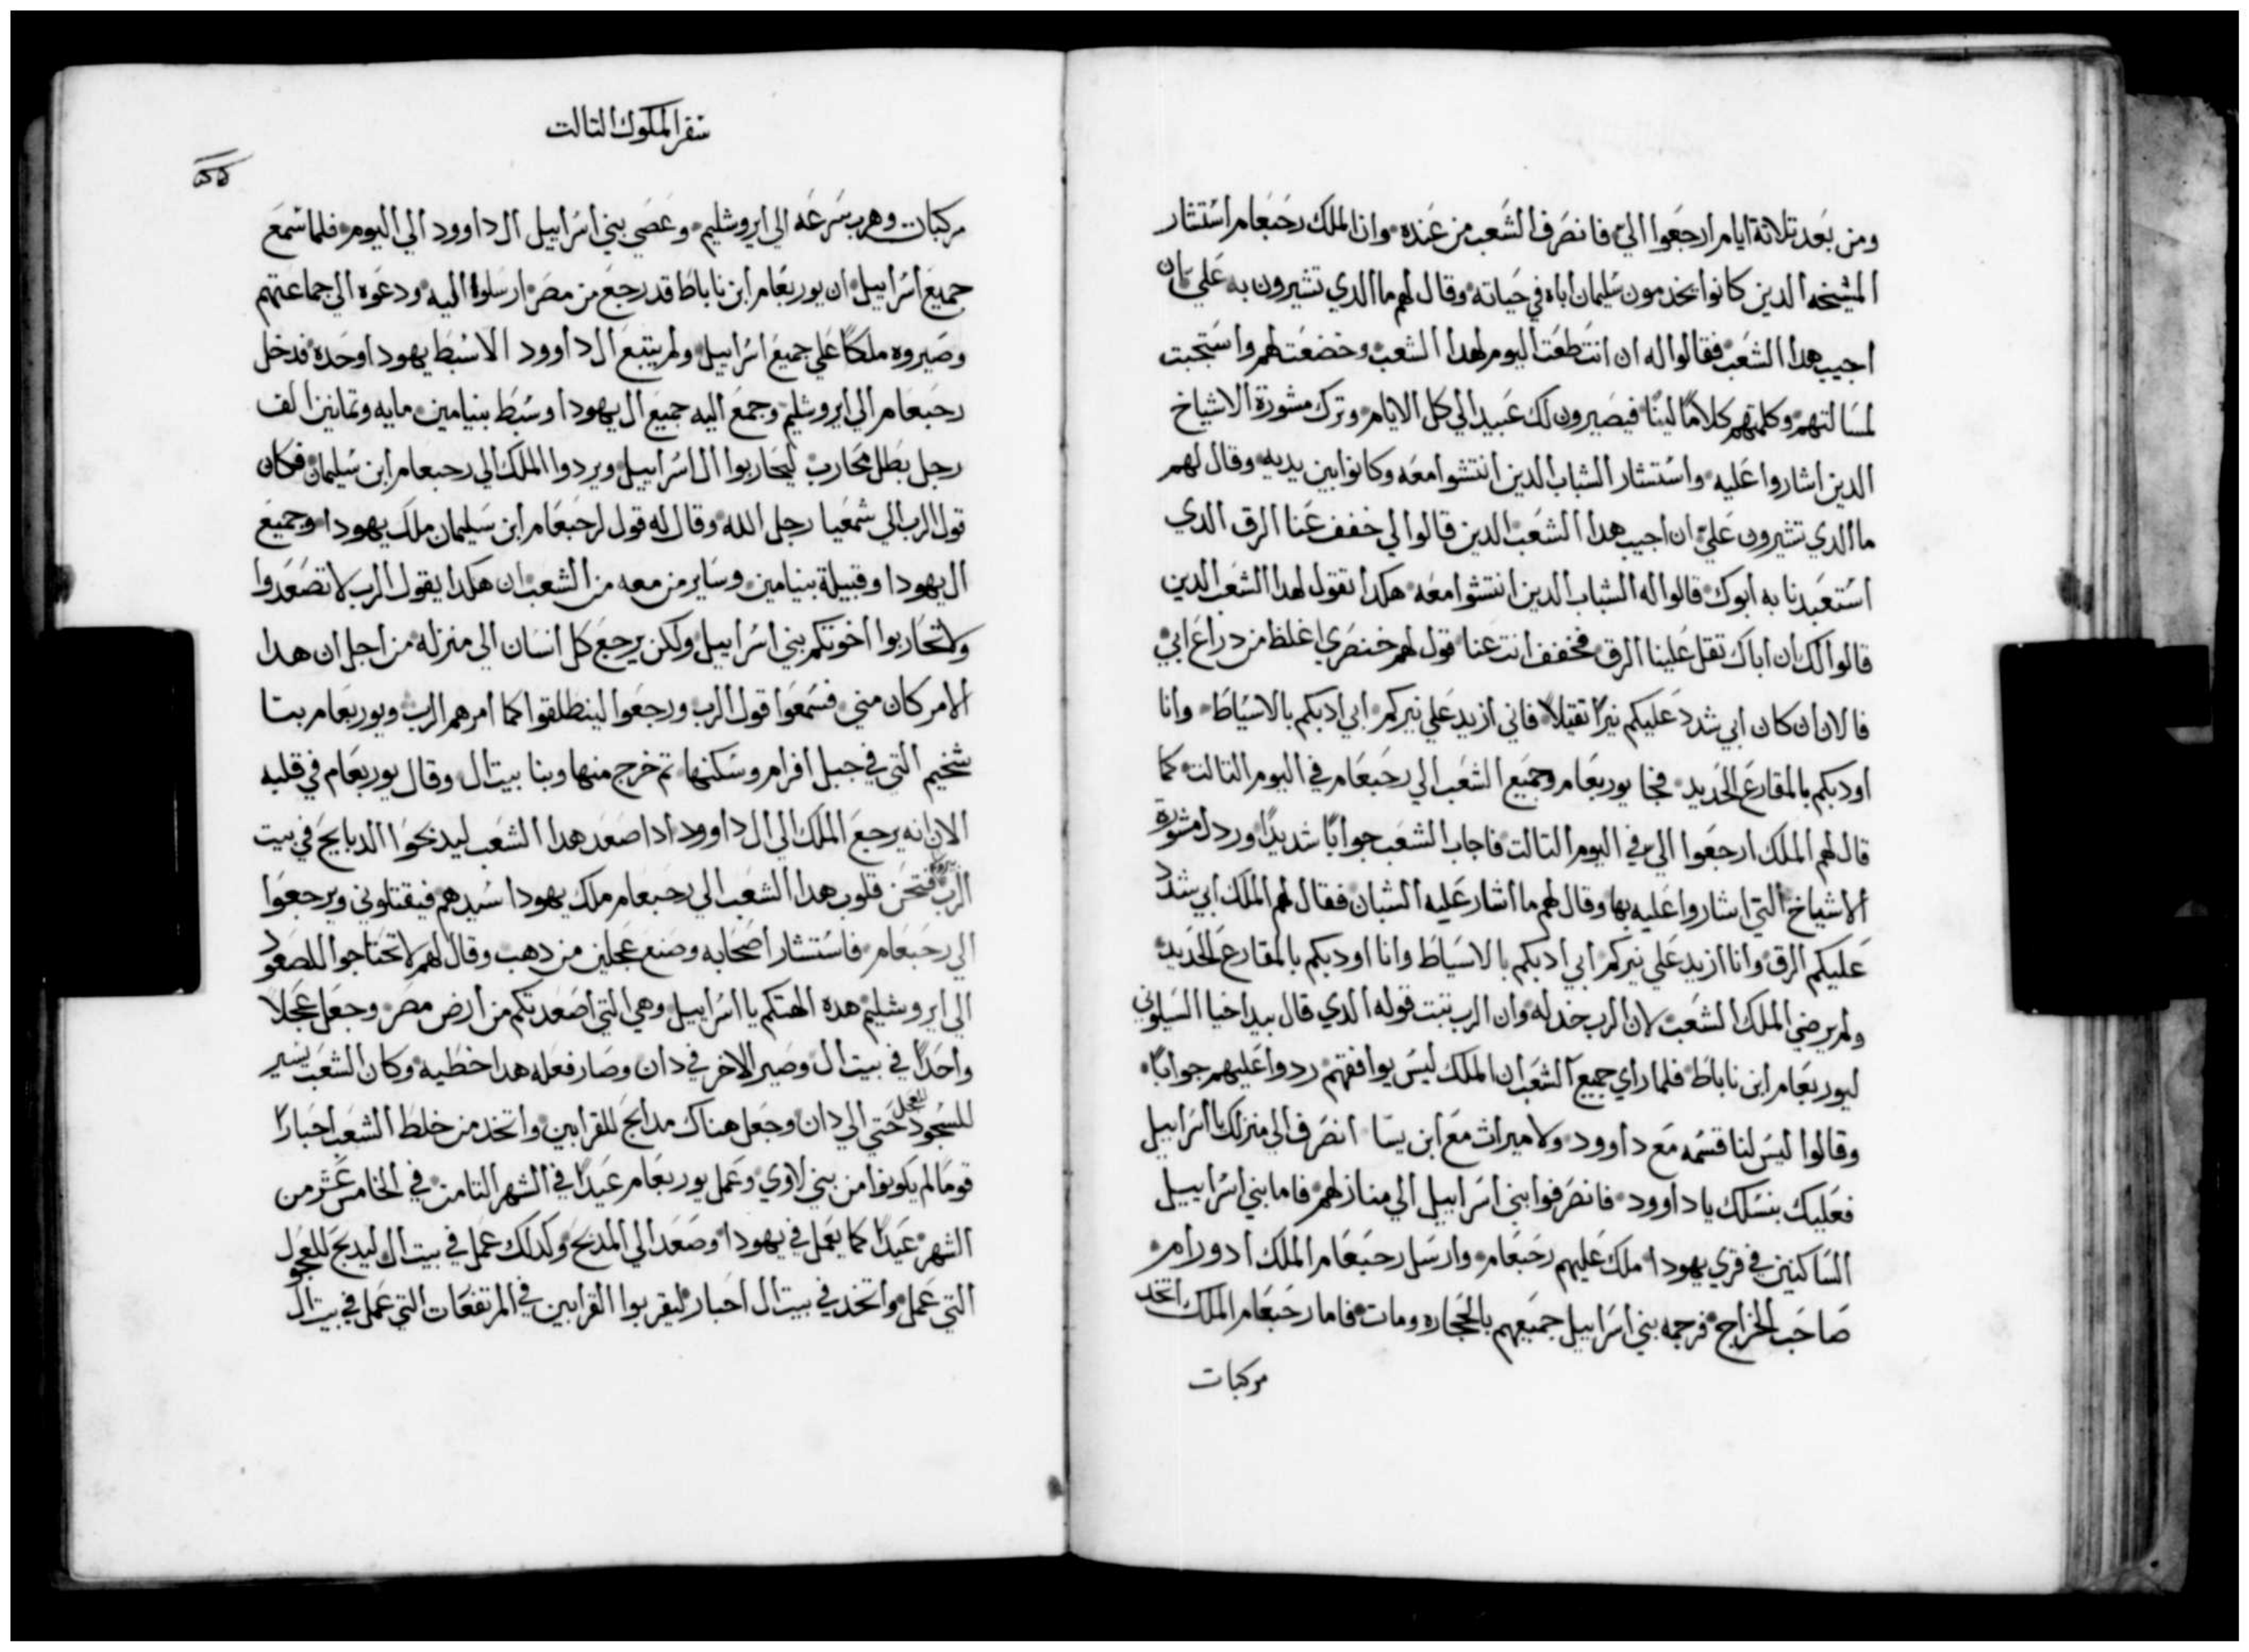 ومن بعد تلاتة ايام ارجعوا الي فانصرف الشعب من عنده وان الملك رحبعام استشار
المشيخه الدين كانوا يخدمون سليمان اباه في حياته وقال لهم ما الدي تشيرون به علي ان
اجيب هدا الشعب فقالوا له ان انتطعت اليوم لهدا الشعب وخضعت لهم واستجبت
لمسالتهم وكلمتهم كلاما لينا فيصيرون لك عبيد الي كل الايام وترك مشورة الاشياخ
الدين اشاروا عليه واستشار الشباب الدين انتشوا معه وكانوا بين يديه وقال لهم
ما الدي تشيرون علي ان اجيب هدا الشعب الدين قالوا لي خفف عنا الرق الدي
استعبدنا به ابوك قالوا له الشباب الدين انتشوا معه هكدا تقول لهدا الشعب الدين
قالوا لك ان اباك تقل علينا الرق فخفف انت عنا قول لهم خنصري اغلظ من دراع ابي
فالان ان كان ابي شدد عليكم نيرا تقيلا فاني ازيد علي نيركم ابي ادبكم بالاسياط وانا
اودبكم بالمقارع الحديد فجا يوربعام وجميع الشعب الي رحبعام في اليوم التالت كما
قال لهم الملك ارجعوا الي في اليوم التالت فاجاب الشعب جوابا شديدا ورد ل مشورة
الاشياخ التي اشاروا عليه بها وقال لهم ما اشار عليه الشبان فقال لهم الملك ابي شدد
عليكم الرق وانا ازيد علي نيركم ابي ادبكم بالاسياط وانا اودبكم بالمقارع الحديد
ولم يرضي الملك الشعب لان الرب خدله وان الرب تبت قوله الدي قال بيد اخيا السيلوني
ليوربعام ابن ناباط فلما راي جميع الشعب ان الملك ليس يوافقهم ردوا عليهم جوابا
وقالوا ليس لنا قسمه مع داوود ولا ميراث مع ابن يسا انصرف الي منزلك يا اسراييل
فعليك بنسلك يا داوود فانصرفوا بني اسراييل الي منازلهم فاما بني اسراييل
الساكنين في قري يهودا ملك عليهم رحبعام وارسل رحبعام الملك ادورام
صاحب الخراج فرجمه بني اسراييل جميعهم بالحجاره ومات فاما رحبعام الملك اتخد
مركبات
سفر الملوك التالت
مركبات وهرب سرعه الي ايروشليم وعصي بني اسراييل ال داوود الي اليوم فلما سمع
جميع اسراييل ان يوربعام ابن ناباط قد رجع من مصر ارسلوا اليه ودعوه الي جماعتهم
وصيروه ملكا علي جميع اسراييل ولم يتبع ال داوود الا سبط يهودا وحده فدخل
رحبعام الي ايروشليم وجمع اليه جميع ال يهودا وسبط بنيامين مايه وتمانين الف
رجل بطل محارب ليحاربوا ال اسراييل ويردوا الملك الي رحبعام ابن سليمان فكان
قول الرب الي شمعيا رجل الله وقال له قول لرحبعام ابن سليمان ملك يهودا وجميع
ال يهودا وقبيلة بنيامين وساير من معه من الشعب ان هكدا يقول الرب لا تصعدوا
ولا تحاربوا اخوتكم بني اسراييل ولكن يرجع كل انسان الي منزله من اجل ان هدا
الامر كان مني فسمعوا قول الرب ورجعوا لينطلقوا كما امرهم الرب ويوربعام بنا
شخيم التي في جبل افرام وسكنها تم خرج منها وبنا بيت ال وقال يوربعام في قلبه
الان انه يرجع الملك الي ال داوود ادا صعد هدا الشعب ليدبحوا الدبايح في بيت
الرب فتحن قلوب هدا الشعب الي رحبعام ملك يهودا سيدهم فيقتلوني ويرجعوا
الي رحبعام فاستشار اصحابه وصنع عجلين من دهب وقال لهم لا تحتاجوا للصعود
الي ايروشليم هده الهتكم يا اسراييل وهي التي اصعدتكم من ارض مصر وجعل عجلا
واحدا في بيت ال وصير الاخر في دان وصار فعله هدا خطيه وكان الشعب يسير
للسجود للعجل حتي الي دان وجعل هناك مدابح للقرابين واتخد من خلط الشعب احبارا
قوما لم يكونوا من بني لاوي وعمل يوربعام عيدا في الشهر التامن في الخامس عشر من
الشهر عيدا كما يعمل في يهودا وصعد الي المدبح وكدلك عمل في بيت ال ليدبح للعجول
التي عمل واتخد في بيت ال احبار ليقربوا القرابين في المرتفعات التي عمل في بيت ال